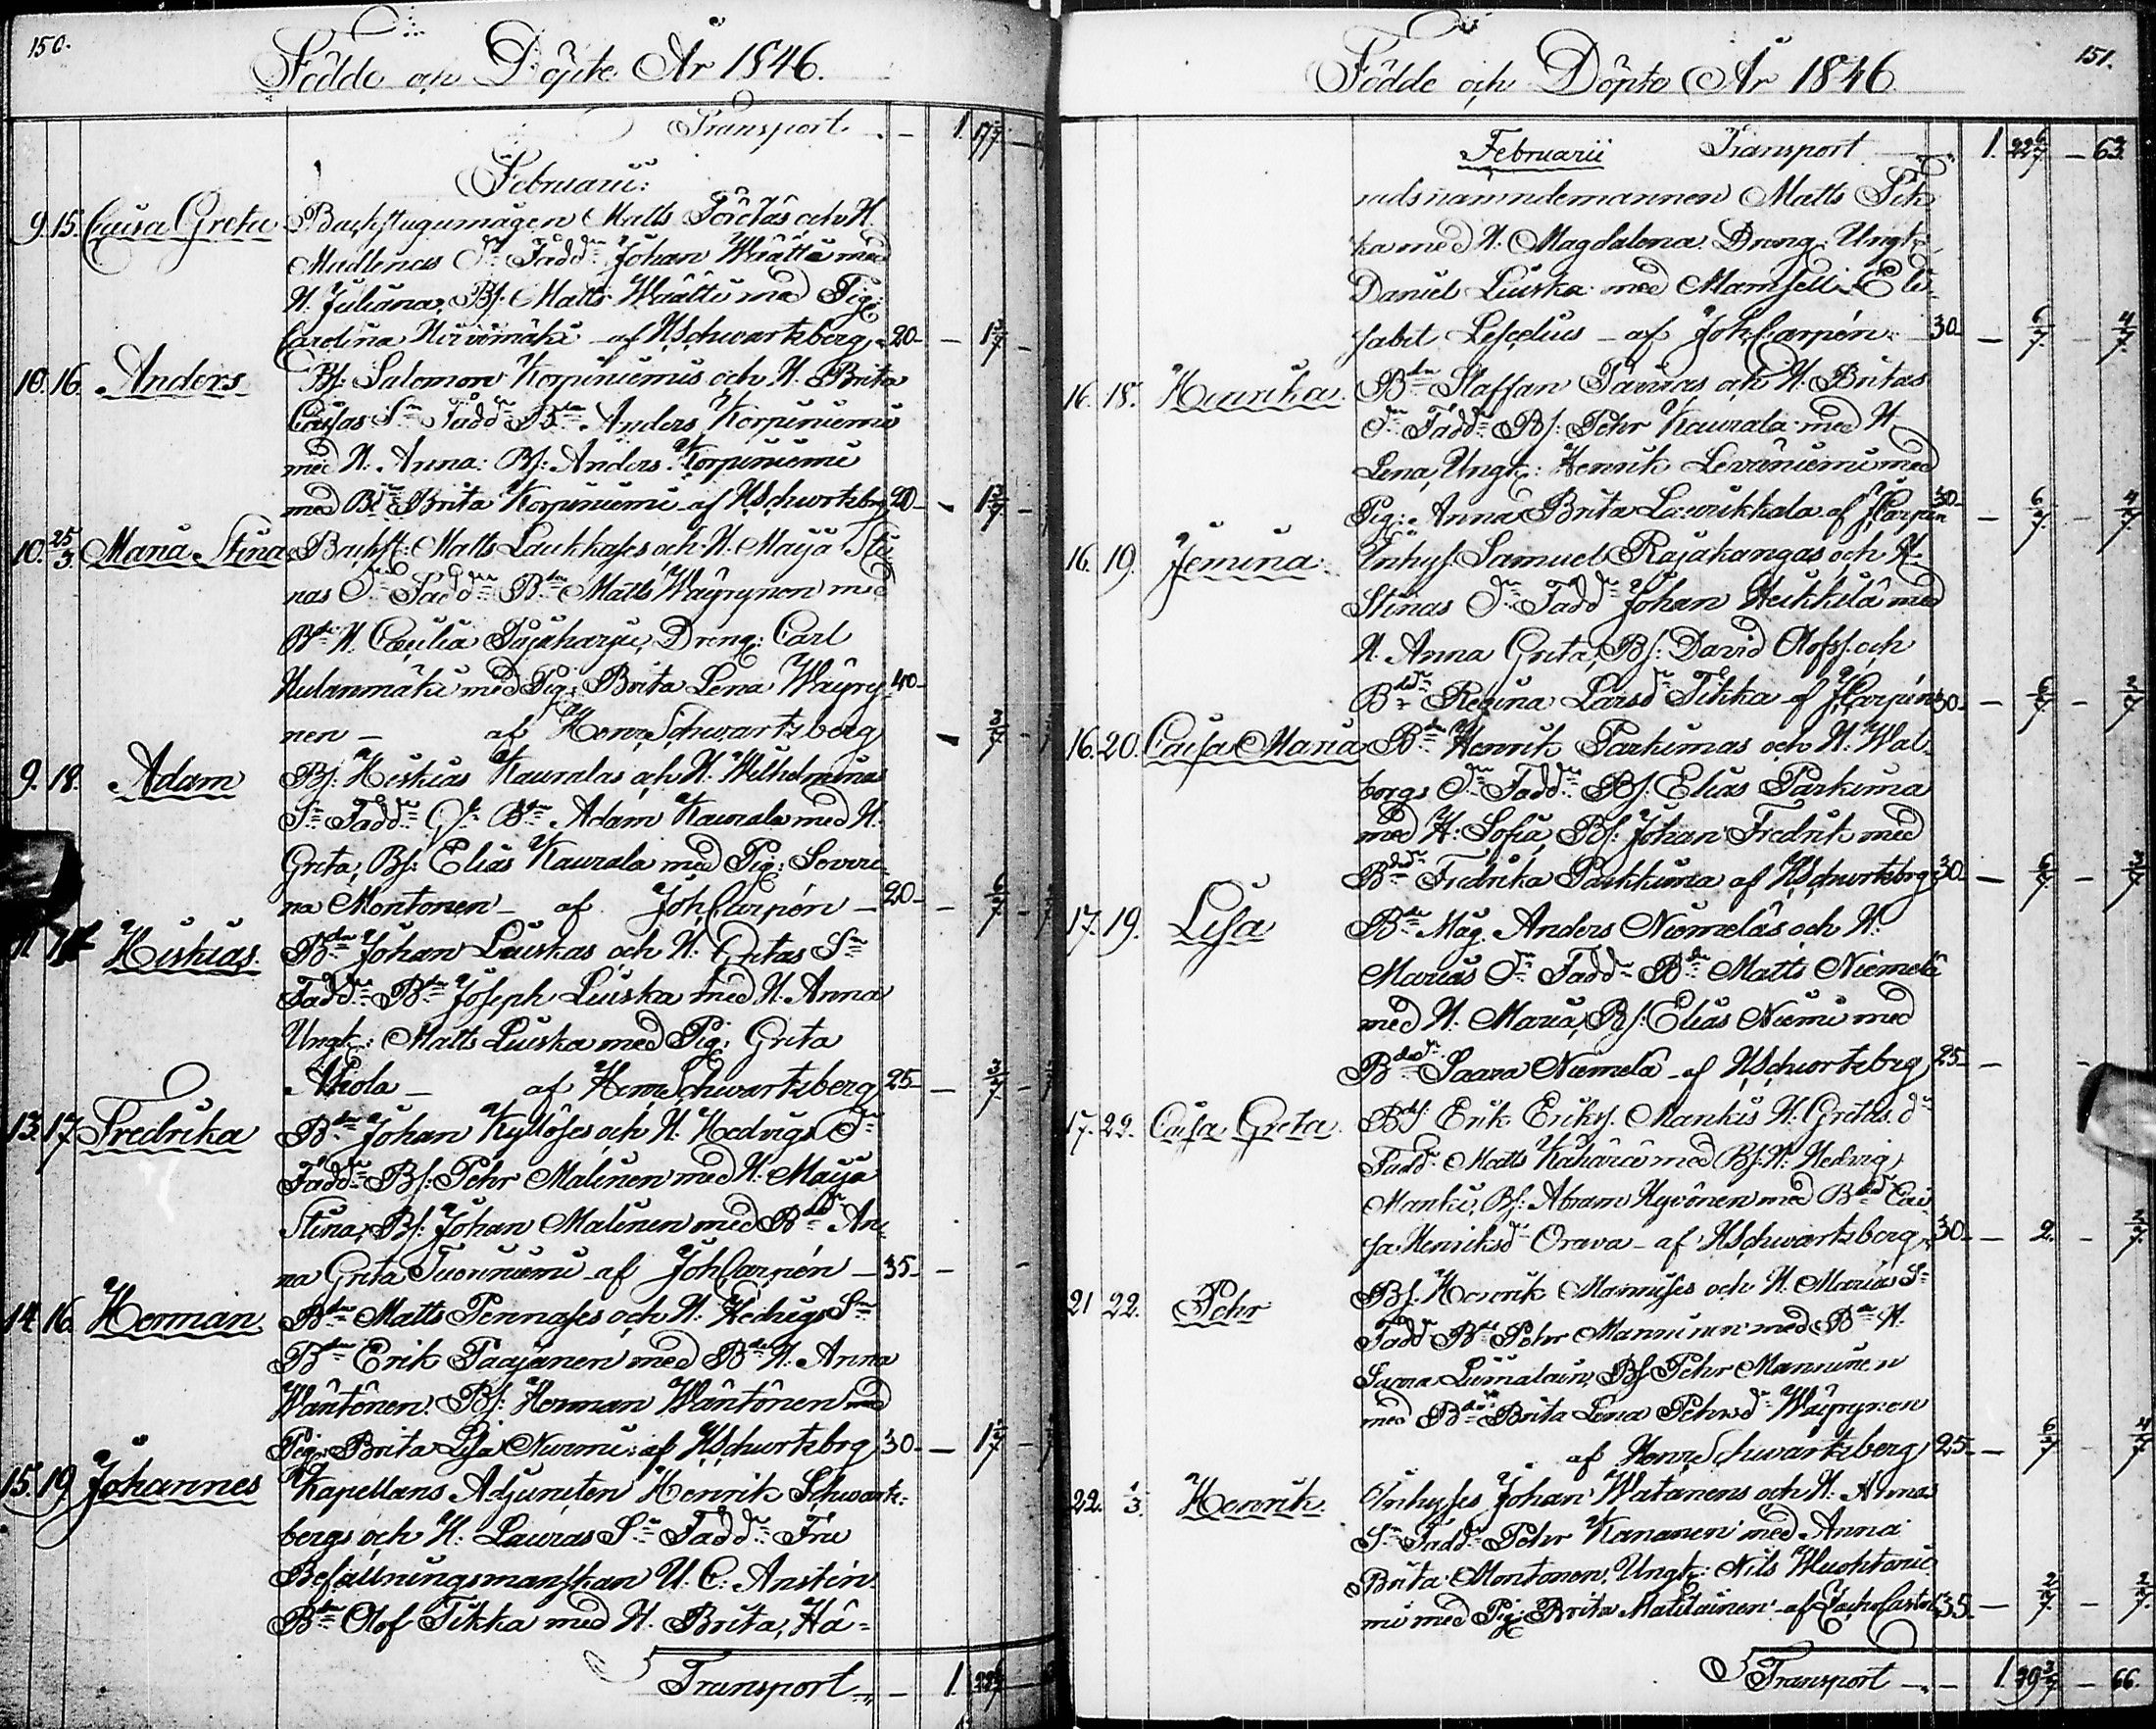 150.
Födde och Döpte År 1846.
Transport. — 1. 17 3/7
Februarii:
9. 15. Caisa Greta Backstugumågen Matts Törmäs och H.
Madlenas Dr. Fadd: Johan Määttä med
H. Juliana, Bs: Matts Määttä med Pig:
Carolina af HSchwartzberg. 20 — 1 3/7
10. 16. Anders Bs: Salomon Korpiniemis och H. Brita
Caisas Sn Fadd: Bdn Anders Korpiniemi
med H. Anna: Bs: Anders Korpiniemi
med Brita Korpiniemi af HSchwartzbrg 20 — 1 3/7
10. 25/3. Maria Stina Backst: Matts Laukkases och H. Maija Sti-
nas Dr Fadd: Bdn Matts Wäyrynen med
Bdn H. Cæcilia Pajuharju, Dreng: Carl
med Pig: Brita Lena Wäyry- 40
nen — af Henr Schwartzberg — 3/7
9. 18. Adam Bs: Heskias Kauralas och H. Wilhelminas
Sn Fadd: Bdn Adam Kaurala med H.
Greta, Bs: Elias Kaurala med Pig: Sovii-
na Montonen — af JohCarpén — 20 — 6/7
11. Heskias. Bdn Johan Luiskas och H. Gretas Sn
Fadd: Bdn Joseph Luiska med H. Anna
Ungk: Matts Luiska med Pig: Greta
Ahola — af Henr Schwartzberg 25 — 3/7
13. 17. Fredrika Bdn Johan Kyllöses och H. Hedvigs Dr
Fadd: Bs: Pehr Malinen med H. Maija
Stina, Bs: Johan Malinen med Bdd An-
na Greta Tuominiemi af JohCarpén — 35 —
14. 16. Herman Bdn Matts Pennases och H. Hedvigs Sn
Bdn Erik Paajanen med Bdn H. Anna
Wäntönen. Bs: Herman Wäntönen med
Pig: Brita Lisa Nurmi af HSchwartzbrg 30 — 1 2/7
15. 19. Johannes Kapellans Adjuncten Henrik Schwartz-
bergs och H. Lauras Sn Fadd: Fru
Befallningsmanskan U. C: Anstén.
Bdn Olof Tikka med H. Brita, Hä-
Transport — 1. 22 6/7
151.
Födde och Döpte År 1846.
Februarii Transport — 1. 22 6/7 — 63.
radsnämndemannen Matts Tik-
ka med H. Magdalena. Dreng: Ungk:
Daniel Luiska med Mamsell Eli-
sabet Lescelius — af JohCarpén. 30 — 6/7 — 4/7
16. 18. Henrika. Bdn Staffan Taurias och H. Britas
Dr Fadd: Bs: Pehr Kaurala med H.
Lena, Ungk: Henrik Leväniemi med
Pig: Anna Brita Laurikkala af JCarpén 30 — 6/7 — 4/7
16. 19. Jemina. Inhys. Samuel Rajakangas och H.
Stinas Dr Fadd: Johan Heikkilä med
H. Anna Greta, Bs: David Olofss. och
Bdd Regina Larsd. Tikka af JCarpén 30 — 6/7 — 2/7
16. 20. Caisa Maria Bdn Henrik Parkimas och H. Wal-
borgs Dr Fadd: Bs: Elias Parkima
med H: Sofia, Bs: Johan Fredrik med
Bdd Fredrika Parkkima af HSchwartzbrg 30 — 6/7 — 3/7
17. 19. Lisa Bdn Måg Anders Niemeläs och H.
Marias Dr Fadd: Bdn Matts Niemelä
med H. Maria, Bs: Elias Niemi med
Bdd Saara Niemelä af HSchwartzbrg 25 —
17. 22. Caisa Greta. Bds: Erik Eriks. Mankis H. Gretas d
Fadd: Matts Kähärä med Bs: H. Hedvig
Manki, Bs: Abram Hyvönen med Bdd Cai-
sa Henriksd. Orava — af HSchwartzberg 30 — 2. — 2/7
21 22. Pehr Bs: Henrik Mannises och H. Marias Sn
Fadd Bdn Pehr Manninen med Bdn H.
Saara Liimatain, Bs Pehr Manninen
med Bdd Brita Lena Pehrsd. Wäyrynen
af Henr Schwartzberg 25 — 6/7 — 4/7
22. 1/3. Henrik. Inhyses Johan Watanens och H. Annas
Sn Fadd: Pehr Kananen med Anna
Brita Montonen, Ungk: Nils
mi med Pig: Brita Matilainen af 35 — 2/7 — 2/7
Transport — 1. 29 3/7 — 66.